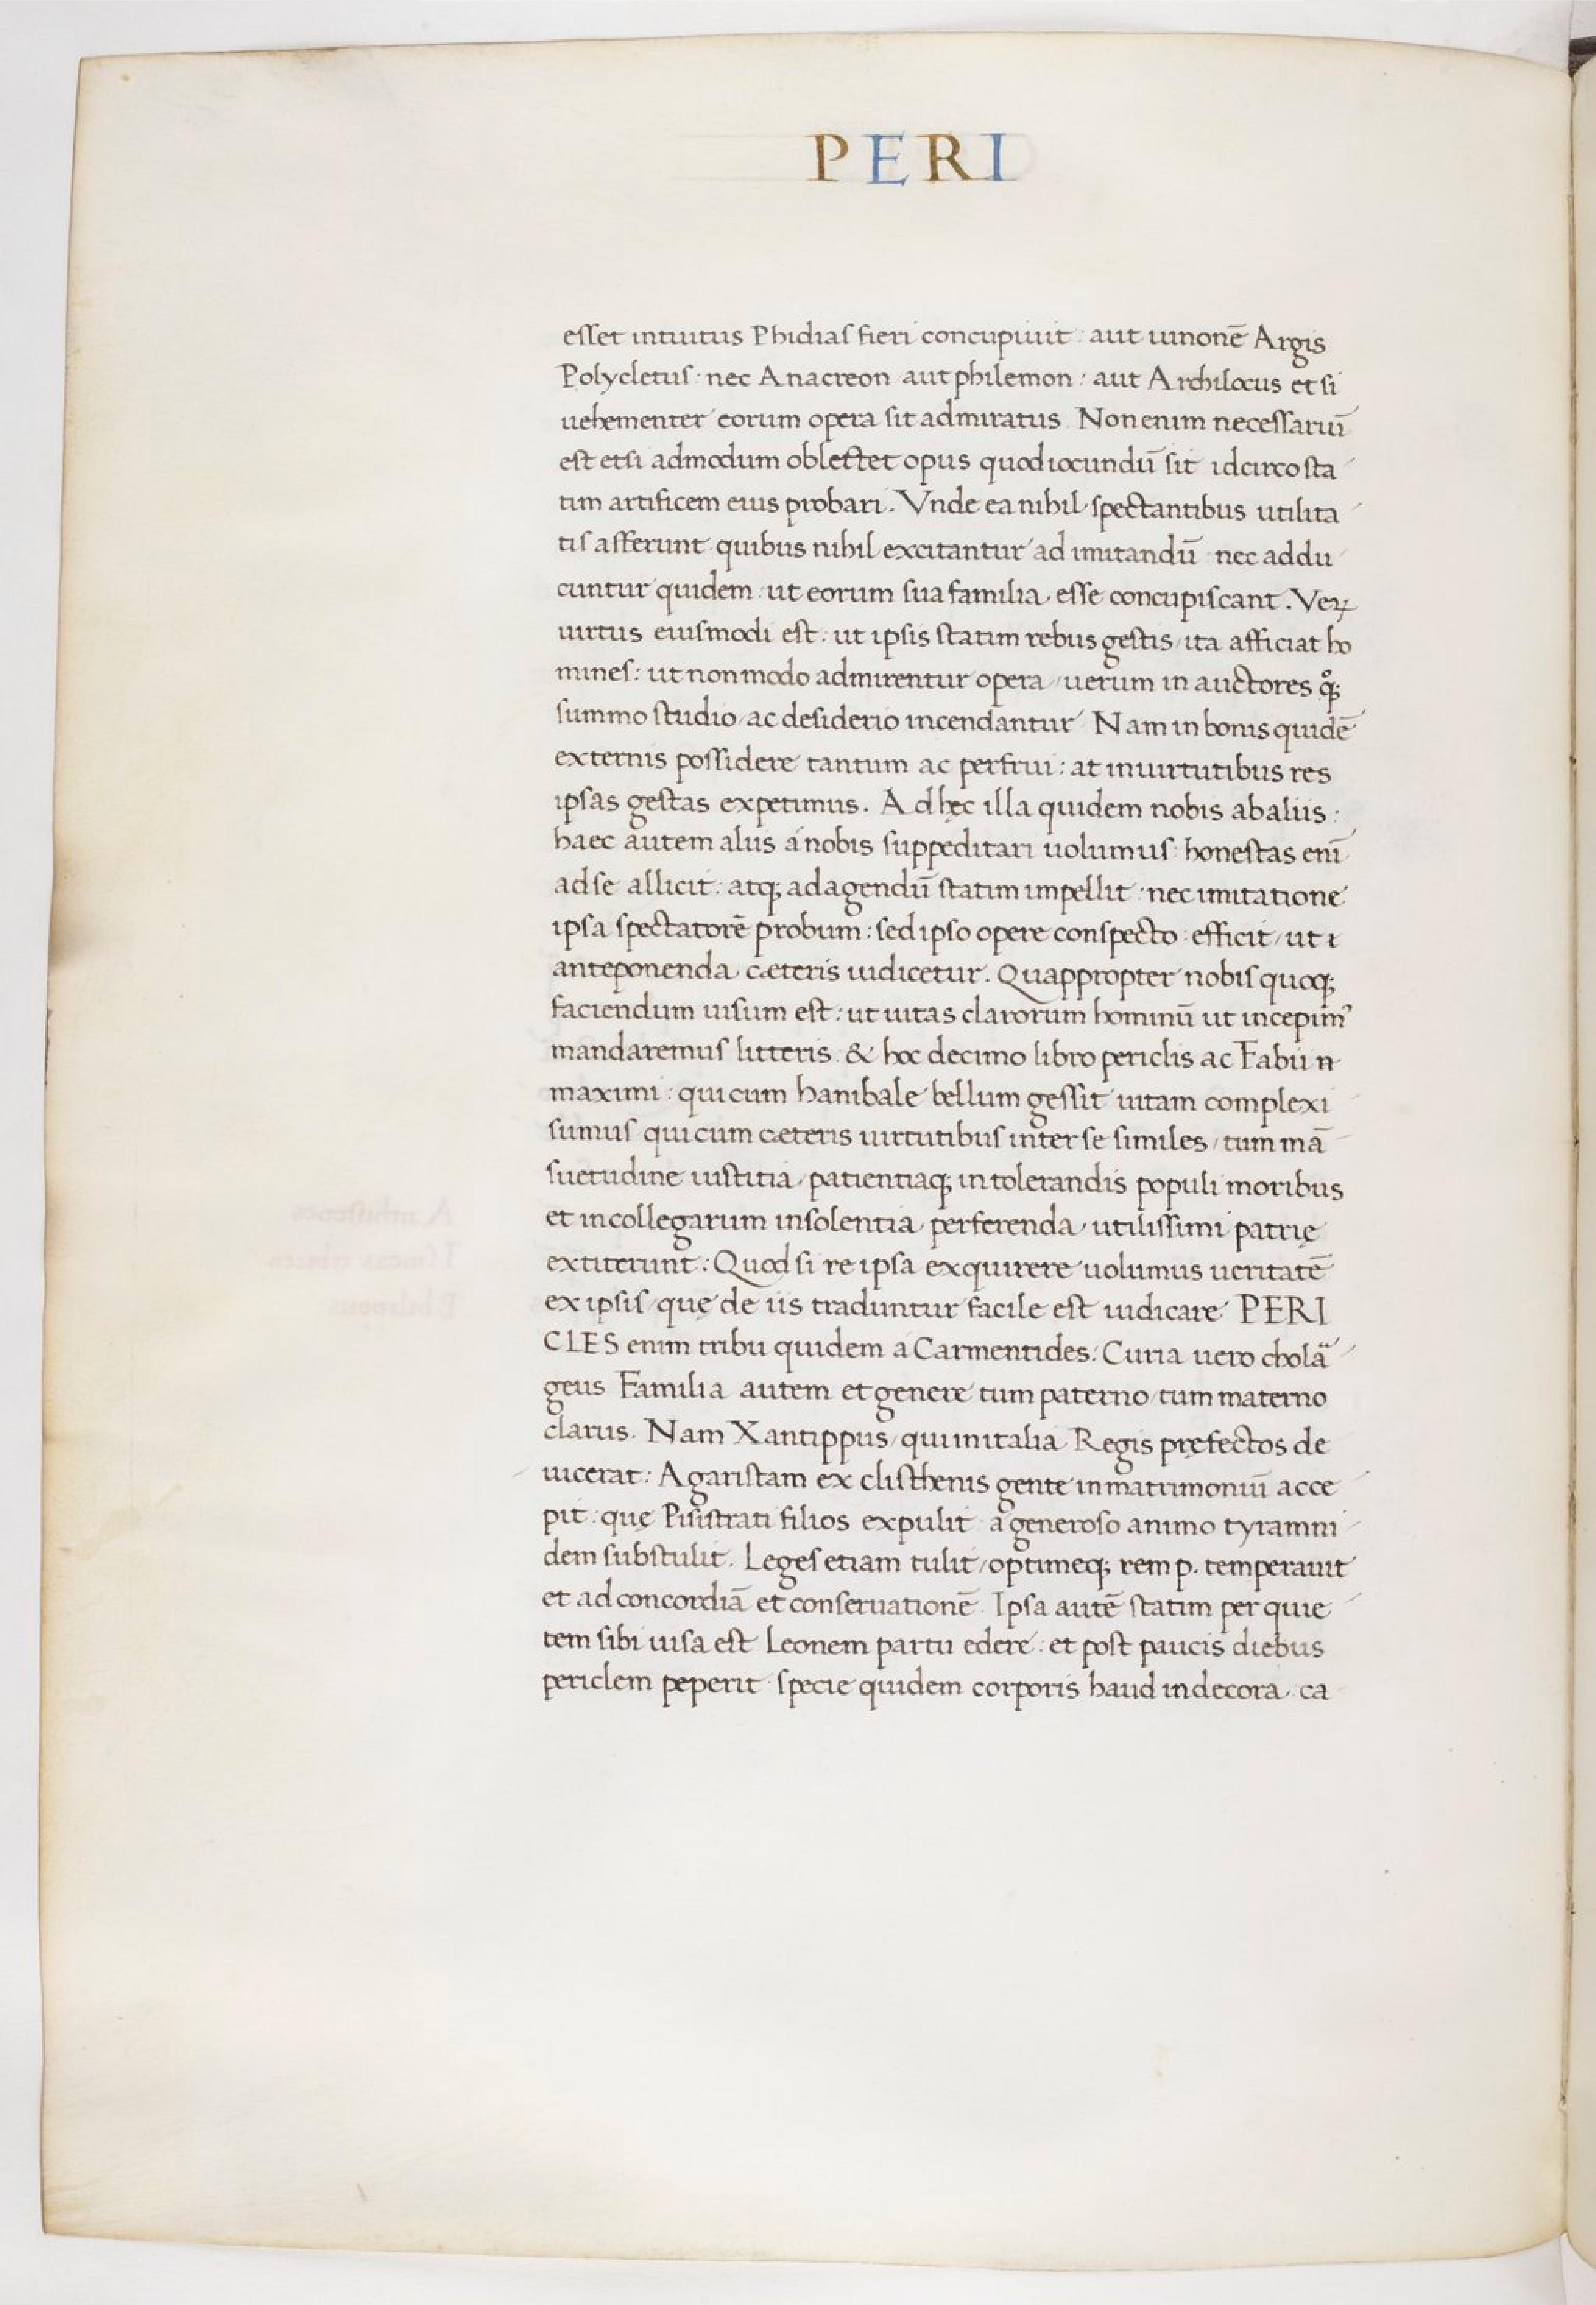 PERI
esset intuitus Phidias fieri concupiuit : aut iunonē Argis
Polycletus : nec Anacreon aut philemon : aut Archilocus et si
uehementer eorum opera sit admiratus . Non enim necessariū
est etsi admodum oblectet opus quod iocundū sit idcirco sta
tim artificem eius probari . Vnde ea nihil spectantibus utilita
tis afferunt quibus nihil excitantur ad imitandū nec addu
cuntur quidem : ut eorum sua familia esse concupiscant . Veꝝ
uirtus eiusmodi est : ut ipsis statim rebus gestis / ita afficiat ho
mines : ut non modo admirentur opera / uerum in auctores qͦꝫ
summo studio / ac desiderio incendantur Nam in bonis quidē
externis possidere tantum ac perfrui : at in uirtutibus res
ipsas gestas expetimus . Ad hęc illa quidem nobis ab aliis :
haec autem aliis a nobis suppeditari uolumus : honestas enī
ad se allicit : atqꝫ ad agendū statim impellit : nec imitatione
ipsa spectatorē probum : sed ipso opere conspecto : efficit / ut ı
anteponenda cæteris iudicetur . Quappropter nobis quoqꝫ
faciendum uisum est : ut uitas clarorum hominū ut incepimꝰ
mandaremus litteris . & hoc decimo libro periclis ac Fabii n
maximi : qui cum hanibale bellum gessit uitam complexi
sumus qui cum cæteris uirtutibus inter se similes / tum mā
suetudine iustitia / patientiaqꝫ in tolerandis populi moribus
et in collegarum insolentia perferenda utilissimi patrię
extiterunt : Quod si re ipsa exquirere uolumus ueritatē
ex ipsis / quę de iis traduntur facile est iudicare PERI
CLES enim tribu quidem a Carmentides : Curia uero cholā
geus Familia autem et genere tum paterno / tum materno
clarus . Nam Xantippus / qui in italia Regis pręfectos de
uicerat : Agaristam ex clisthenis gente in matrimoniū acce
pit : quę Pisistrati filios expulit a generoso animo tyramni
dem substulit . Leges etiam tulit / optimeqꝫ rem p. temperauit
et ad concordiā et conseruationē . Ipsa autē statim per quie
tem sibi uisa est Leonem partu edere : et post paucis diebus
periclem peperit specie quidem corporis haud indecora ca